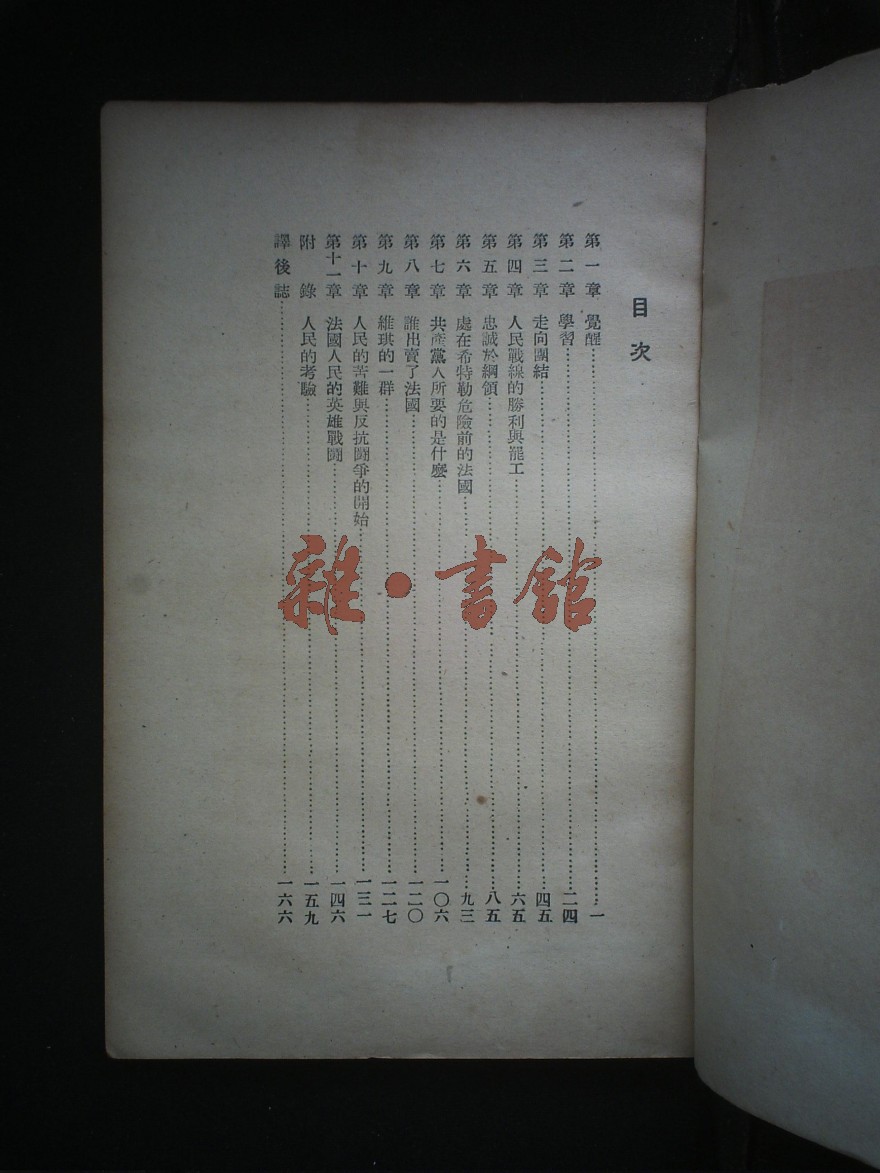 目次
第一章 覺醒……一
第二章 學習……二四
第三章 走向團結……四五
第四章 人民戰線的勝利與罷工……六五
第五章 忠誠於綱領……八五
第六章 處在希特勒危險前的法國……九三
第七章 共產黨人所要的是什麼……一〇六
第八章 誰出賣了法國……一二〇
第九章 維琪的一群……一二七
第十章 人民的苦難與反抗鬪爭的開始……一三一
第十一章 法國人民的英雄戰鬪……一四六
附錄 人民的考驗……一五九
譯後誌……一六六
雜·書館